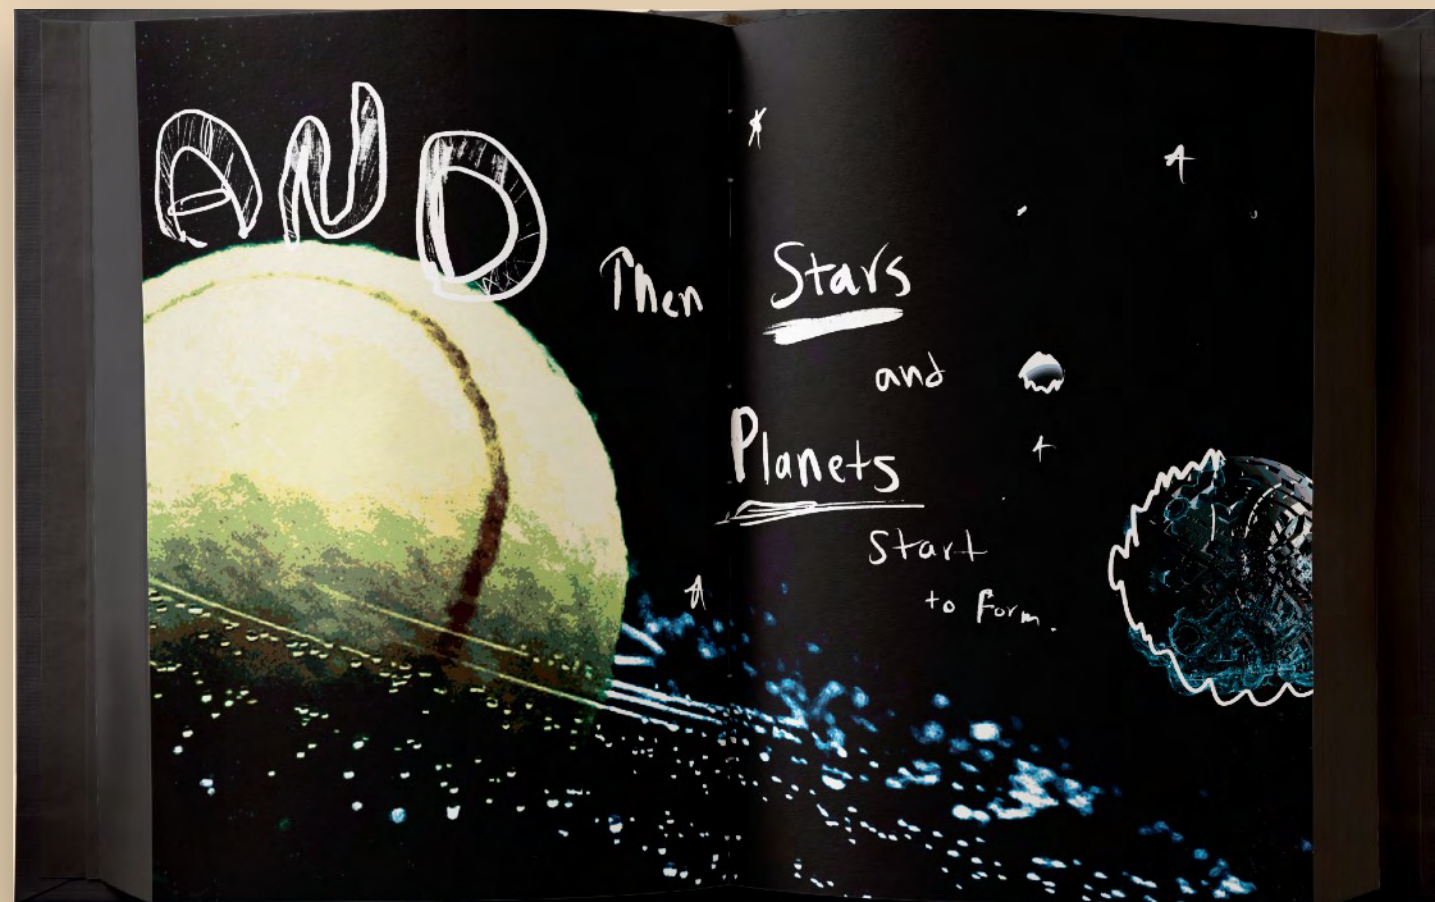 AND
Then Stars
and
Planets
start
to form.